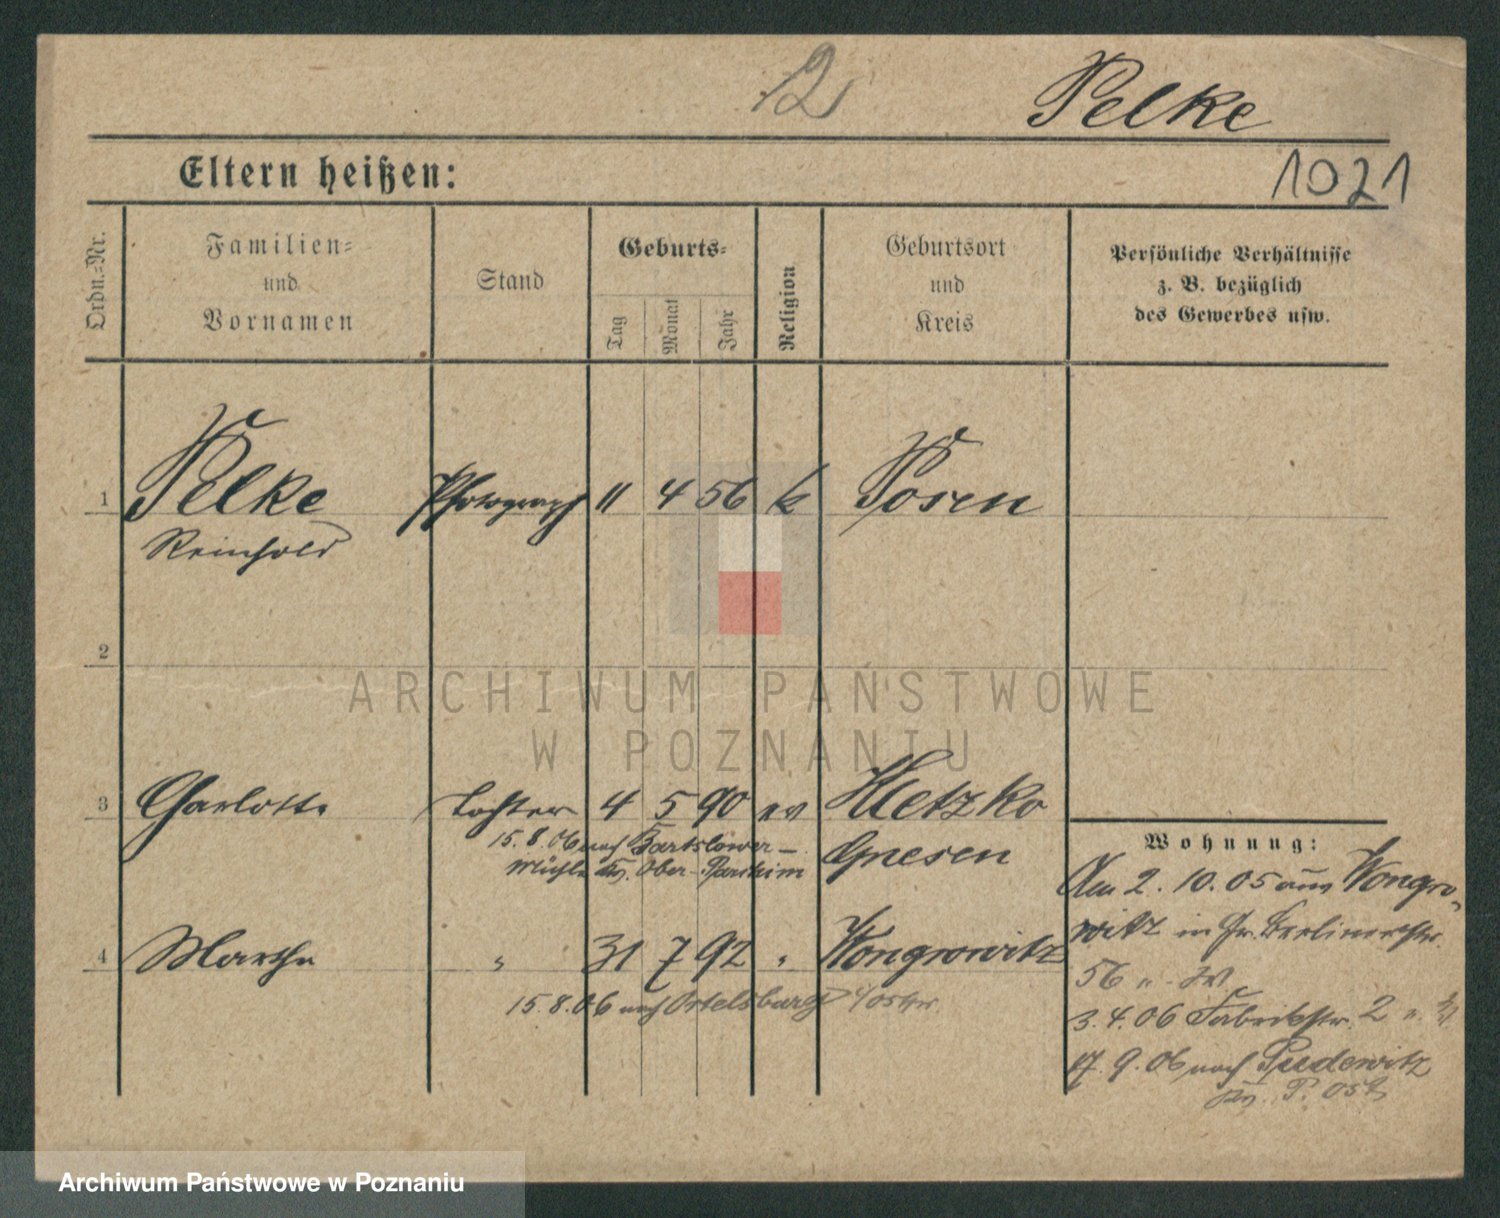 2 Pelke
Eltern heißen:
1021
Ordn.=Nr.
Familien=
und
Vornamen
Stand
Geburts=
Tag
Monat
Jahr
Religion
Geburtsort
und
Kreis
Persönliche Verhältnisse
z. B. bezüglich
des Gewerbes usw.
1 Pelke Photograph 11 4 56 k Posen
Reinhold
2
3 Charlotte Tochter 4 5 90 ev Kletzko
15.8.06 nach
Mühle Kr. Ober-
Gnesen
4 Martha " 31 7 92 " Wongrowitz
15.8.06 nach Ortelsburg
Wohnung:
Am 2. 10. 05 aus Wongro-
witz in Gr. Berlinerstr.
56
3. 4. 06 Fabrikstr. 2
17. 9. 06 nach Pudewitz
Kr. P. Ost
ARCHIWUM PAŃSTWOWE
W POZNANIU
Archiwum Państwowe w Poznaniu